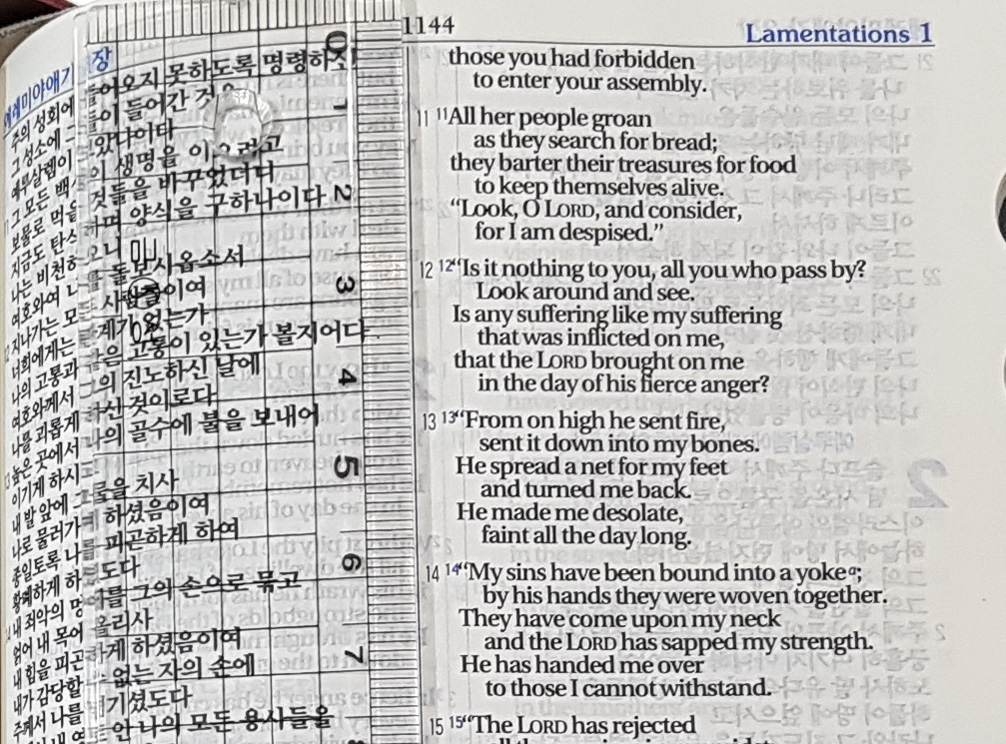 예레미야애가 장
주의 성회에 들어오지 못하도록 명령하신
그 성소에 들이 들어간 것을
예루살렘이 았나이다
그 모든 백 이 생명을 이으려고
보물로 먹을 것들을 바꾸었더니
지금도 탄식하며 양식을 구하나이다
나는 비천하오니
여호와여 나를 돌보시옵소서
12 지나가는 모든 사람들이여
너희에게는 계가 없는가
나의 고통과 같은 고통이 있는가 볼지어다
여호와께서 그의 진노하신 날에
나를 괴롭게 하신 것이로다
13 높은 곳에서 나의 골수에 불을 보내어
이기게 하시고
내 발 앞에 그물을 치사
나로 물러가게 하셨음이여
종일토록 나를 피곤하게 하여
황폐하게 하셨도다
14 내 죄악의 멍에를 그의 손으로 묶고
얽어 내 목에 올리사
내 힘을 피곤하게 하셨음이여
내가 감당할 수 없는 자의 손에
주께서 나를 기셨도다
안 나의 모든 용사들을
0
1
2
3
4
5
6
7
1144
Lamentations 1
those you had forbidden
to enter your assembly.
11 11All her people groan
as they search for bread;
they barter their treasures for food
to keep themselves alive.
“Look, O LORD, and consider,
for I am despised.”
12 12“Is it nothing to you, all you who pass by?
Look around and see.
Is any suffering like my suffering
that was inflicted on me,
that the LORD brought on me
in the day of his fierce anger?
13 13“From on high he sent fire,
sent it down into my bones.
He spread a net for my feet
and turned me back.
He made me desolate,
faint all the day long.
14 14“My sins have been bound into a yoke a;
by his hands they were woven together.
They have come upon my neck
and the LORD has sapped my strength.
He has handed me over
to those I cannot withstand.
15 15“The LORD has rejected